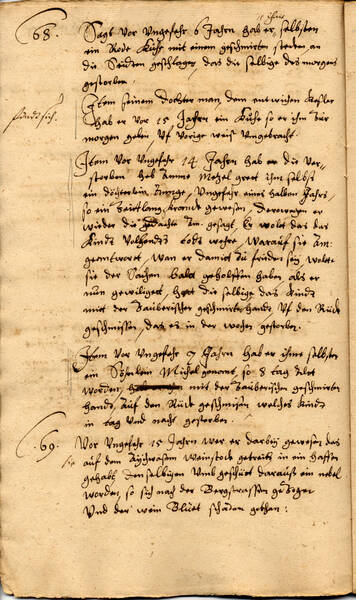 68.
Sagt vor Ungefehr 6 Jahrn hab er, selbsten
ihme
ein Rode Kühe mit einem geschmirten stecken an
die Seüthen geschlagen, das die selbige des morgens
gestorben.
Item seinem dochter man, dem
hab er vor 15 Jahren ein Kühe so er ihm zur
morgen geben, Uf Vorige weiß Umgebracht.
Item vor Ungefehr 14 Jahren hab er die ver-
storben heb Amme Metzel greet ihm selbst
ein döchterlin, Ungefehr eines halben Jahrs,
so ein Zeitlang Kranck gewesen, derwegen er
wieder die gedachte Am. gesagt, Er wolt das das
Kindt Volkendts todt wehre, Warauf sie Am:
geantwort, wan er damit zu friden sey wolte
sie der Sachen bald geholffen haben, als er
nun gewilliget, hat die selbige das Kindt
mit der Zauberischer geschmirter handt, Uf den Rück
geschmissen, das es in der wochen gestorben.
Item vor Ungefehr 7 Jahrn hab er ihme selbsten
ein Söhnlein Michel genant, so 8 tag alt
worden, mit der Zauberischen geschmirten
handt, Auf den Rück geschmissen welches Kindt
in tag Und nacht gestorben.
69.
Vor Ungefehr 15 Jahrn wer er darbey gewesen das
sie auf dem Weinstock getreits in ein haffen
gehabt, denselbigen Umb geschüt darauß ein nebel
worden, so sich nach der Bergstrassen gezogen
Und der wein Blüet schaden gethan: